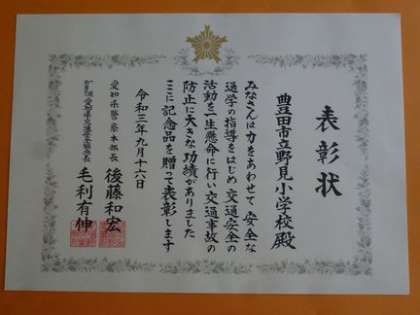 表彰状
豊田市立野見小学校殿
みなさんは力をあわせて安全な
通学の指導をはじめ交通安全の
活動を一生懸命に行い交通事故の
防止に大きな功績がありました
ここに記念品を贈って表彰します
令和三年九月十六日
愛知県警察本部長 後藤和宏
愛知県交通安全協会長 毛利有伸